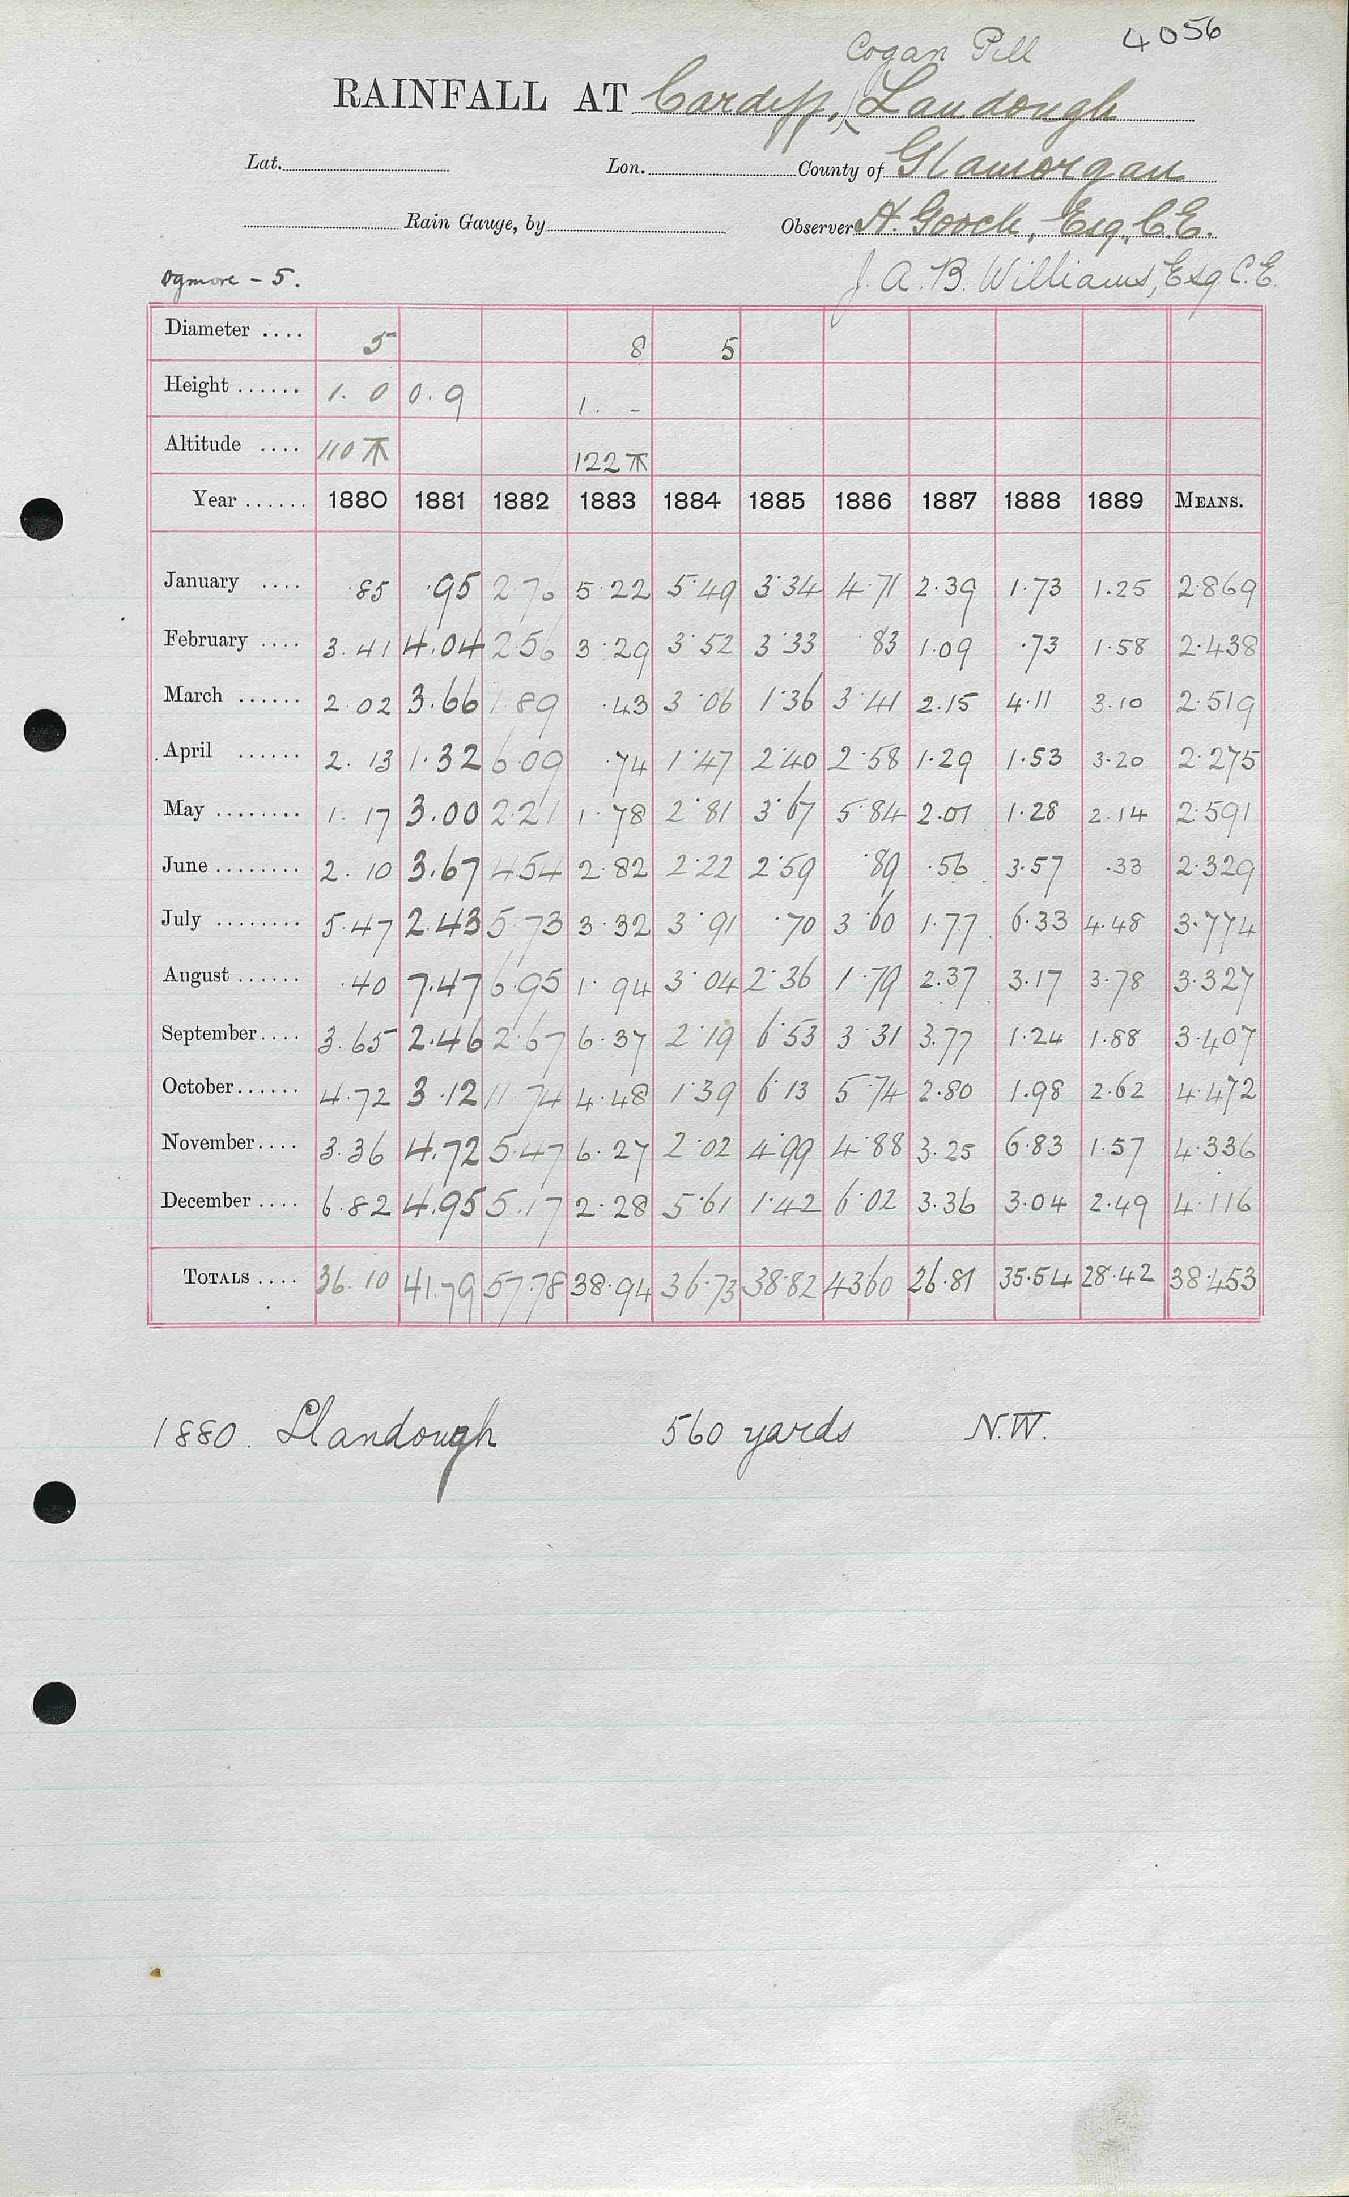 4056
Cogan Pill
RAINFALL AT Cardiff, Landough
Lat. Lon. County of Glamorgan
Rain Gauge, by Observer A. Gooch, Esq, C.E.
Ogmore - 5. J. A. B. Williams, Esq C.E.
Diameter .... 5 8 5
Height ...... 1. 0 0. 9 1. -
Altitude .... 110 122
Year ...... 1880 1881 1882 1883 1884 1885 1886 1887 1888 1889 MEANS.
January .... .85 .95 2.76 5.22 5.49 3.34 4.71 2.39 1.73 1.25 2.869
February .... 3.41 4.04 2.56 3.29 3.52 3.33 .83 1.09 .73 1.58 2.438
March ...... 2.02 3.66 1.89 .43 3.06 1.36 3.41 2.15 4.11 3.10 2.519
April ...... 2.13 1.32 6.09 .74 1.47 2.40 2.58 1.29 1.53 3.20 2.275
May ........ 1.17 3.00 2.21 1.78 2.81 3.67 5.84 2.01 1.28 2.14 2.591
June ........ 2.10 3.67 4.54 2.82 2.22 2.59 .89 .56 3.57 .33 2.329
July ........ 5.47 2.43 5.73 3.32 3.91 .70 3.60 1.77 6.33 4.48 3.774
August ...... .40 7.47 6.95 1.94 3.04 2.36 1.79 2.37 3.17 3.78 3.327
September .... 3.65 2.46 2.67 6.37 2.19 6.53 3.31 3.77 1.24 1.88 3.407
October ...... 4.72 3.12 11.74 4.48 1.39 6.13 5.74 2.80 1.98 2.62 4.472
November .... 3.36 4.72 5.47 6.27 2.02 4.99 4.88 3.25 6.83 1.57 4.336
December .... 6.82 4.95 5.17 2.28 5.61 1.42 6.02 3.36 3.04 2.49 4.116
TOTALS .... 36.10 41.79 57.78 38.94 36.73 38.82 43.60 26.81 35.54 28.42 38.453
1880. Llandough 560 yards N.W.